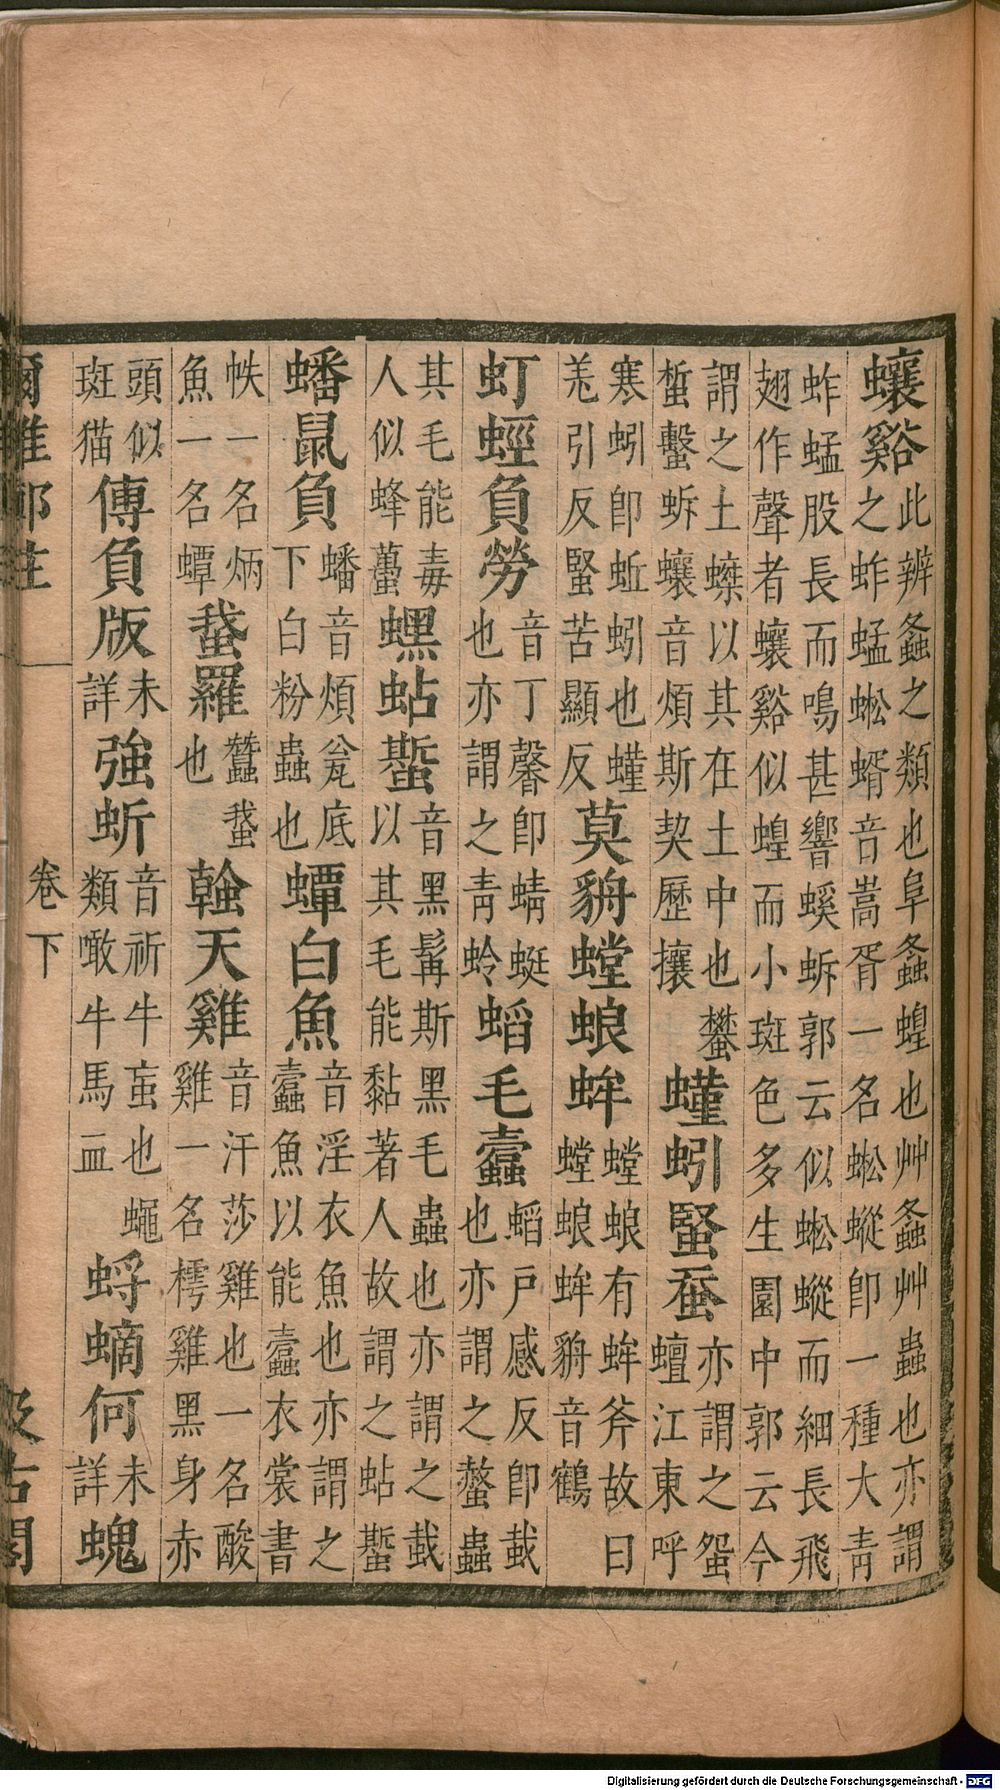 蠰谿
此辨螽之類也阜螽蝗也艸螽艸蟲也亦謂
之蚱蜢蜙蝑音嵩胥一名蜙䗥即一種大青
蚱蜢股長而鳴甚響螇蚸郭云似蜙䗥而細長飛
翅作聲者蠰谿似蝗而小斑色多生園中郭云今
謂之土蟝以其在土中也蠜
蜤蟿蚸蠰音煩斯契歷攘
螼蚓䘆蚕
亦謂之䖤
蟺江東呼
寒蚓即蚯蚓也螼
羌引反䘆苦顯反
莫貈螳蜋蛑
螳蜋有蛑斧故曰
螳蜋蛑貈音鶴
虰蛵負勞
音丁馨即蜻蜓
也亦謂之青蛉
蜭毛蠹
蜭戶感反即蛓
也亦謂之螫蟲
其毛能毒
人似蜂蠆
蟔蛅蟴
音黑髯斯黑毛蟲也亦謂之蛓
以其毛能黏著人故謂之蛅蟴
蟠鼠負
蟠音煩瓮底
下白粉蟲也
蟫白魚
音淫衣魚也亦謂之
蠹魚以能蠹衣裳書
帙一名炳
魚一名蟫
䖸羅
蠶䖸
也
螒天雞
音汗莎雞也一名酸
雞一名樗雞黑身赤
頭似
斑猫
傅負版
未
詳
強蚚
音祈牛䖟也蠅
類噉牛馬血
蛶螪何
未
詳
螝
爾雅鄭註 卷下 汲古閣
Digitalisierung gefördert durch die Deutsche Forschungsgemeinschaft - DFG